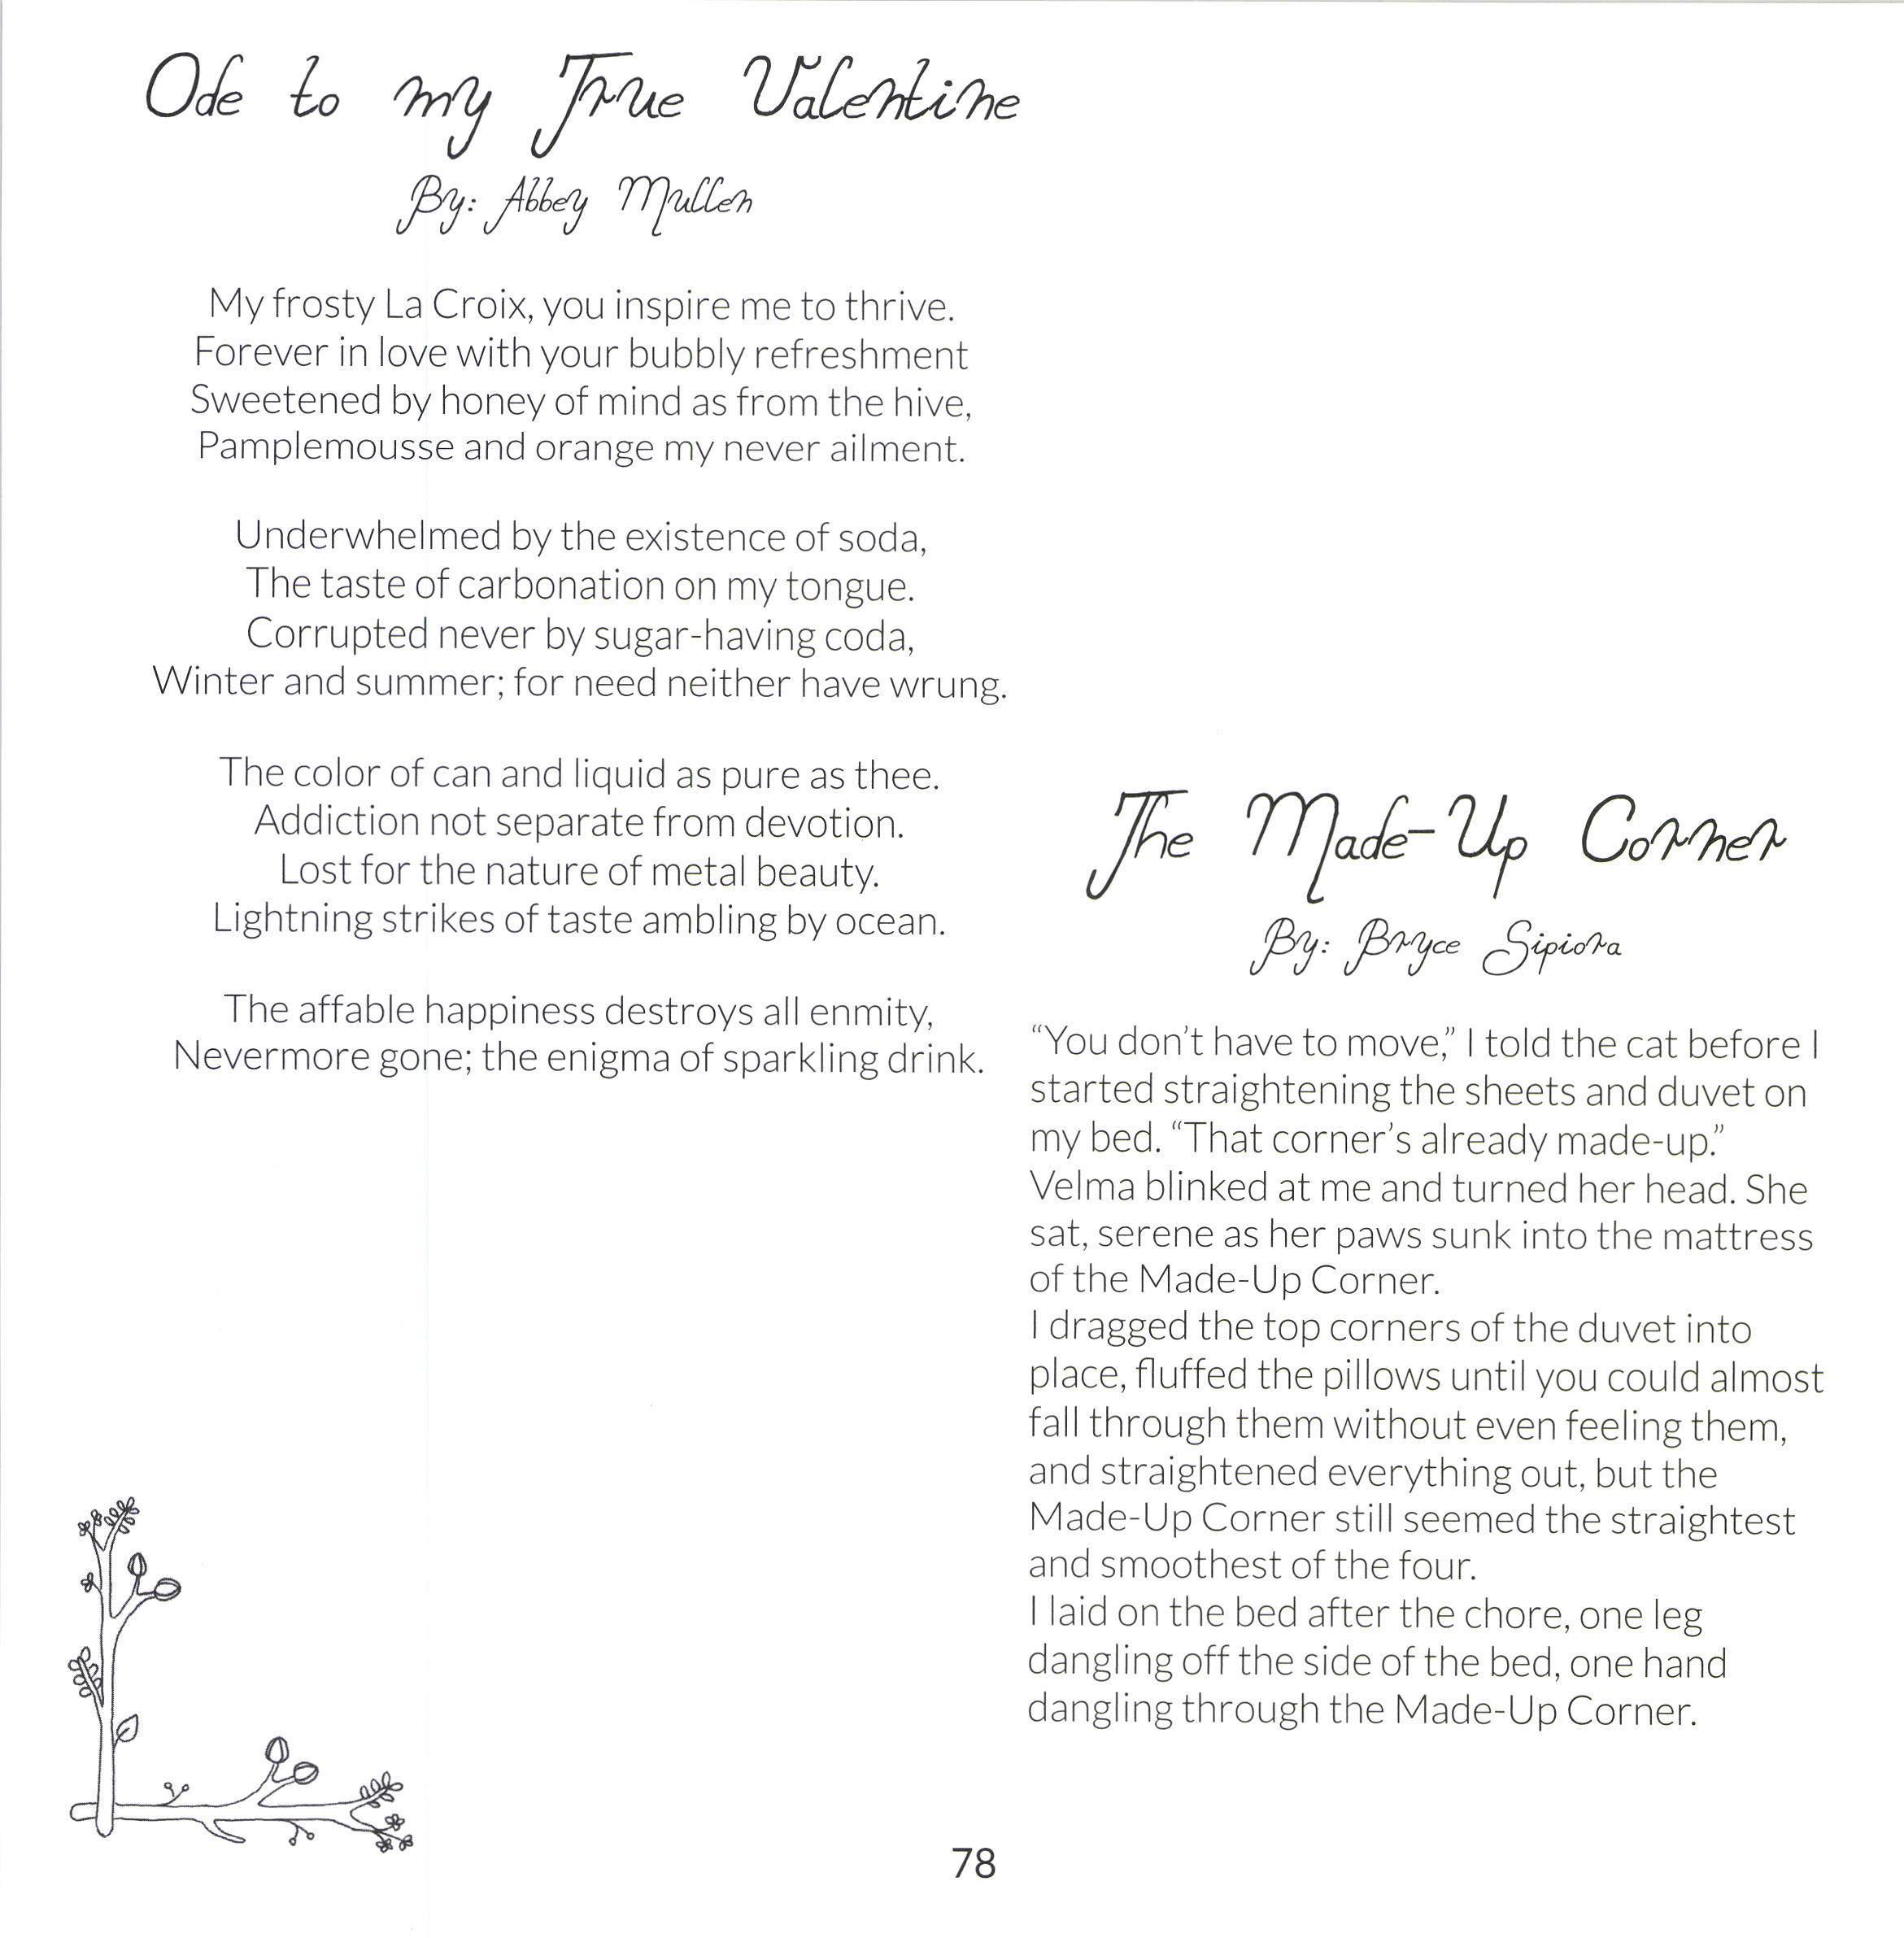 Ode to my True Valentine
By: Abbey Mullen
My frosty La Croix, you inspire me to thrive.
Forever in love with your bubbly refreshment
Sweetened by honey of mind as from the hive,
Pamplemousse and orange my never ailment.
Underwhelmed by the existence of soda,
The taste of carbonation on my tongue.
Corrupted never by sugar-having coda,
Winter and summer; for need neither have wrung.
The color of can and liquid as pure as thee.
Addiction not separate from devotion.
Lost for the nature of metal beauty.
Lightning strikes of taste ambling by ocean.
The affable happiness destroys all enmity,
Nevermore gone; the enigma of sparkling drink.
The Made-Up Corner
By: Bryce Sipiora
“You don’t have to move,” I told the cat before I
started straightening the sheets and duvet on
my bed. “That corner’s already made-up.”
Velma blinked at me and turned her head. She
sat, serene as her paws sunk into the mattress
of the Made-Up Corner.
I dragged the top corners of the duvet into
place, fluffed the pillows until you could almost
fall through them without even feeling them,
and straightened everything out, but the
Made-Up Corner still seemed the straightest
and smoothest of the four.
I laid on the bed after the chore, one leg
dangling off the side of the bed, one hand
dangling through the Made-Up Corner.
78